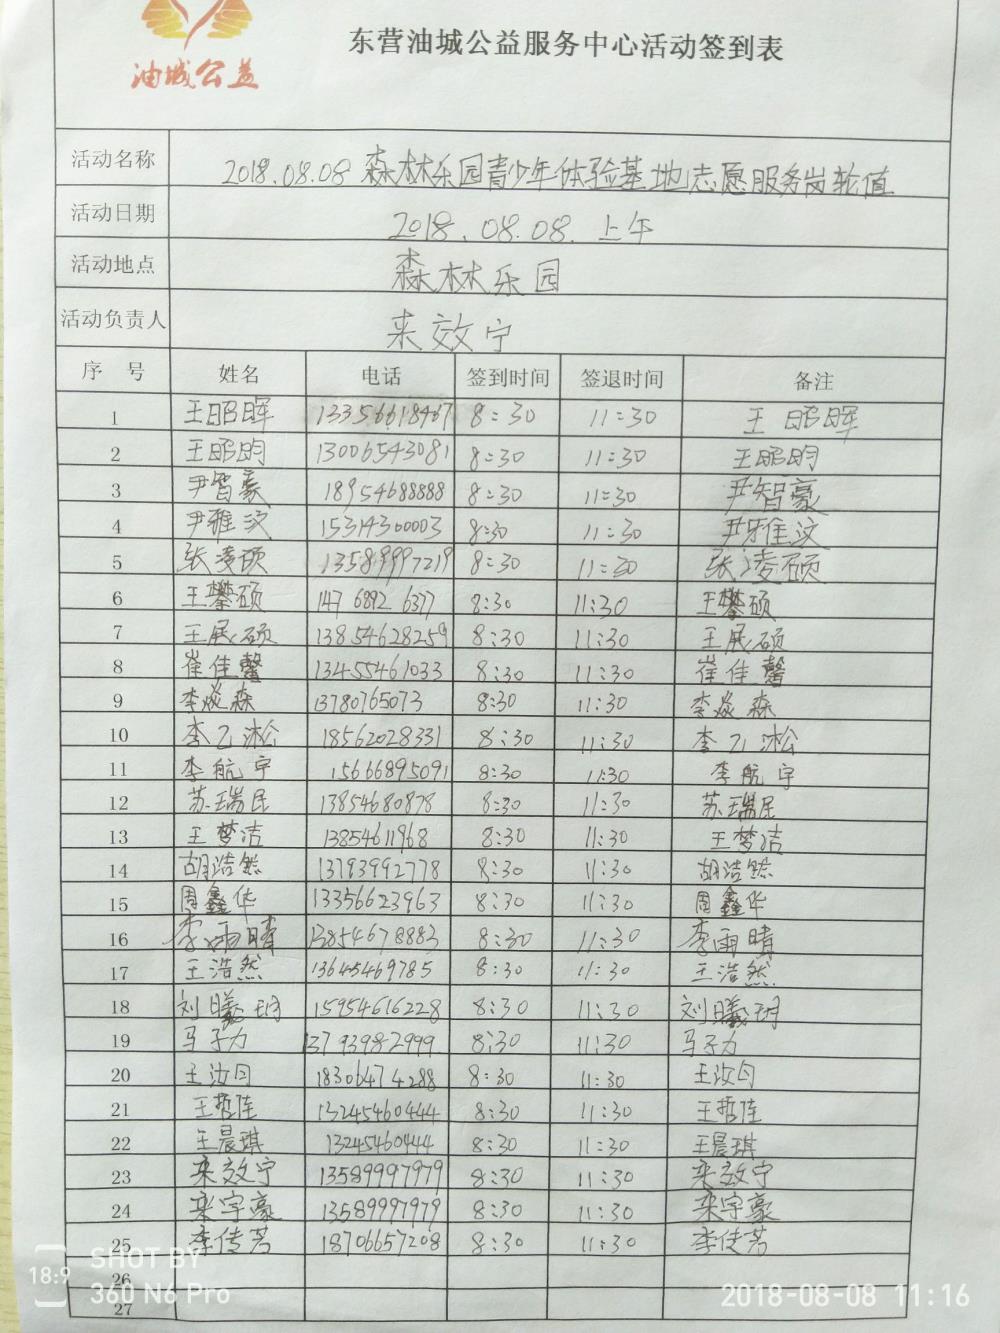 油城公益
东营油城公益服务中心活动签到表
活动名称 2018.08.08 森林乐园青少年体验基地志愿服务岗轮值
活动日期 2018.08.08. 上午
活动地点 森林乐园
活动负责人 来效宁
序号 姓名 电话 签到时间 签退时间 备注
1 王昭晖 13356618467 8:30 11:30 王昭晖
2 王昭昀 13006543081 8:30 11:30 王昭昀
3 尹智豪 18954688888 8:30 11:30 尹智豪
4 尹雅汶 15314300003 8:30 11:30 尹雅汶
5 张凌硕 13589997219 8:30 11:30 张凌硕
6 王攀硕 147 6892 6377 8:30 11:30 王攀硕
7 王展硕 13854628259 8:30 11:30 王展硕
8 崔佳馨 13455461033 8:30 11:30 崔佳馨
9 李焱森 13780765073 8:30 11:30 李焱森
10 李乙淞 18562028331 8:30 11:30 李乙淞
11 李航宇 15666895091 8:30 11:30 李航宇
12 苏瑞民 13854680878 8:30 11:30 苏瑞民
13 王梦洁 13854611968 8:30 11:30 王梦洁
14 胡浩然 13793992778 8:30 11:30 胡浩然
15 周鑫华 13356623963 8:30 11:30 周鑫华
16 李雨晴 13854678883 8:30 11:30 李雨晴
17 王浩然 13645469785 8:30 11:30 王浩然
18 刘曦玥 15954616228 8:30 11:30 刘曦玥
19 马子力 13793982999 8:30 11:30 马子力
20 王汝月 18306474288 8:30 11:30 王汝月
21 王哲佳 13245460444 8:30 11:30 王哲佳
22 王晨琪 13245460444 8:30 11:30 王晨琪
23 来效宁 13589997979 8:30 11:30 来效宁
24 栾宇豪 13589997979 8:30 11:30 栾宇豪
25 李传芳 18706657208 8:30 11:30 李传芳
26
27
18:9
SHOT BY
360 N6 Pro
2018-08-08 11:16